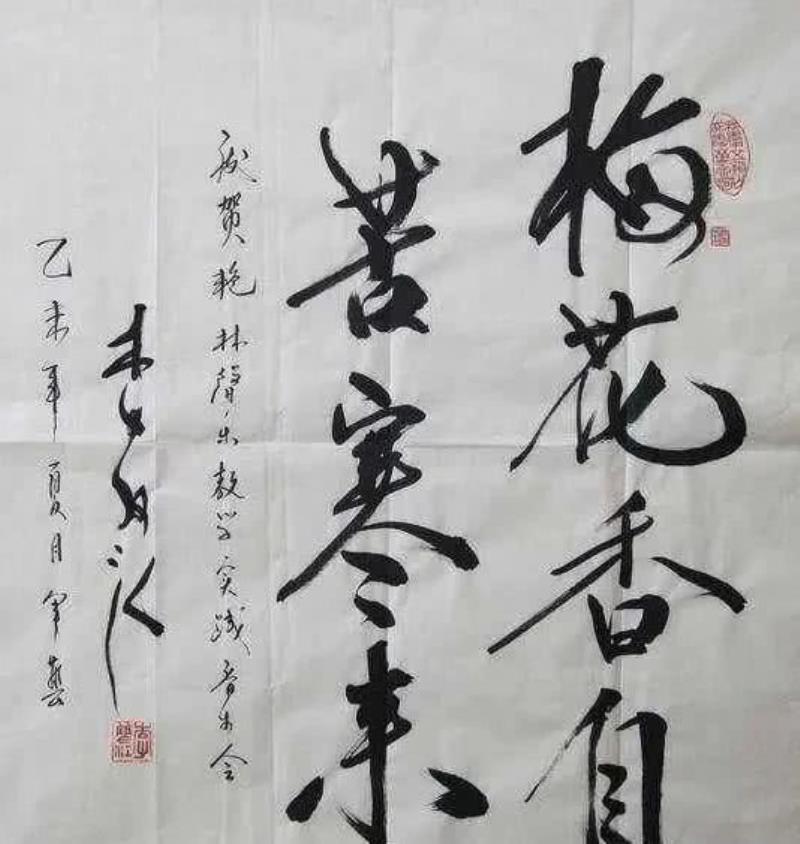 梅花香自
苦寒来
祝贺艳林聲乐教学实践音乐会
李双江
乙未年夏月军藝